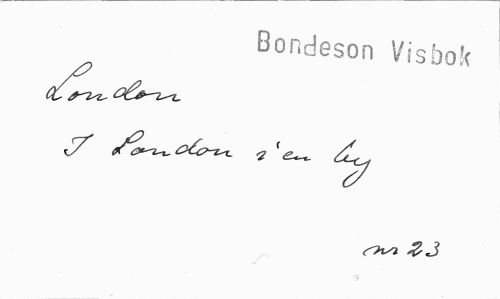 Bondeson Visbok
London
I London i'en by
nr 23